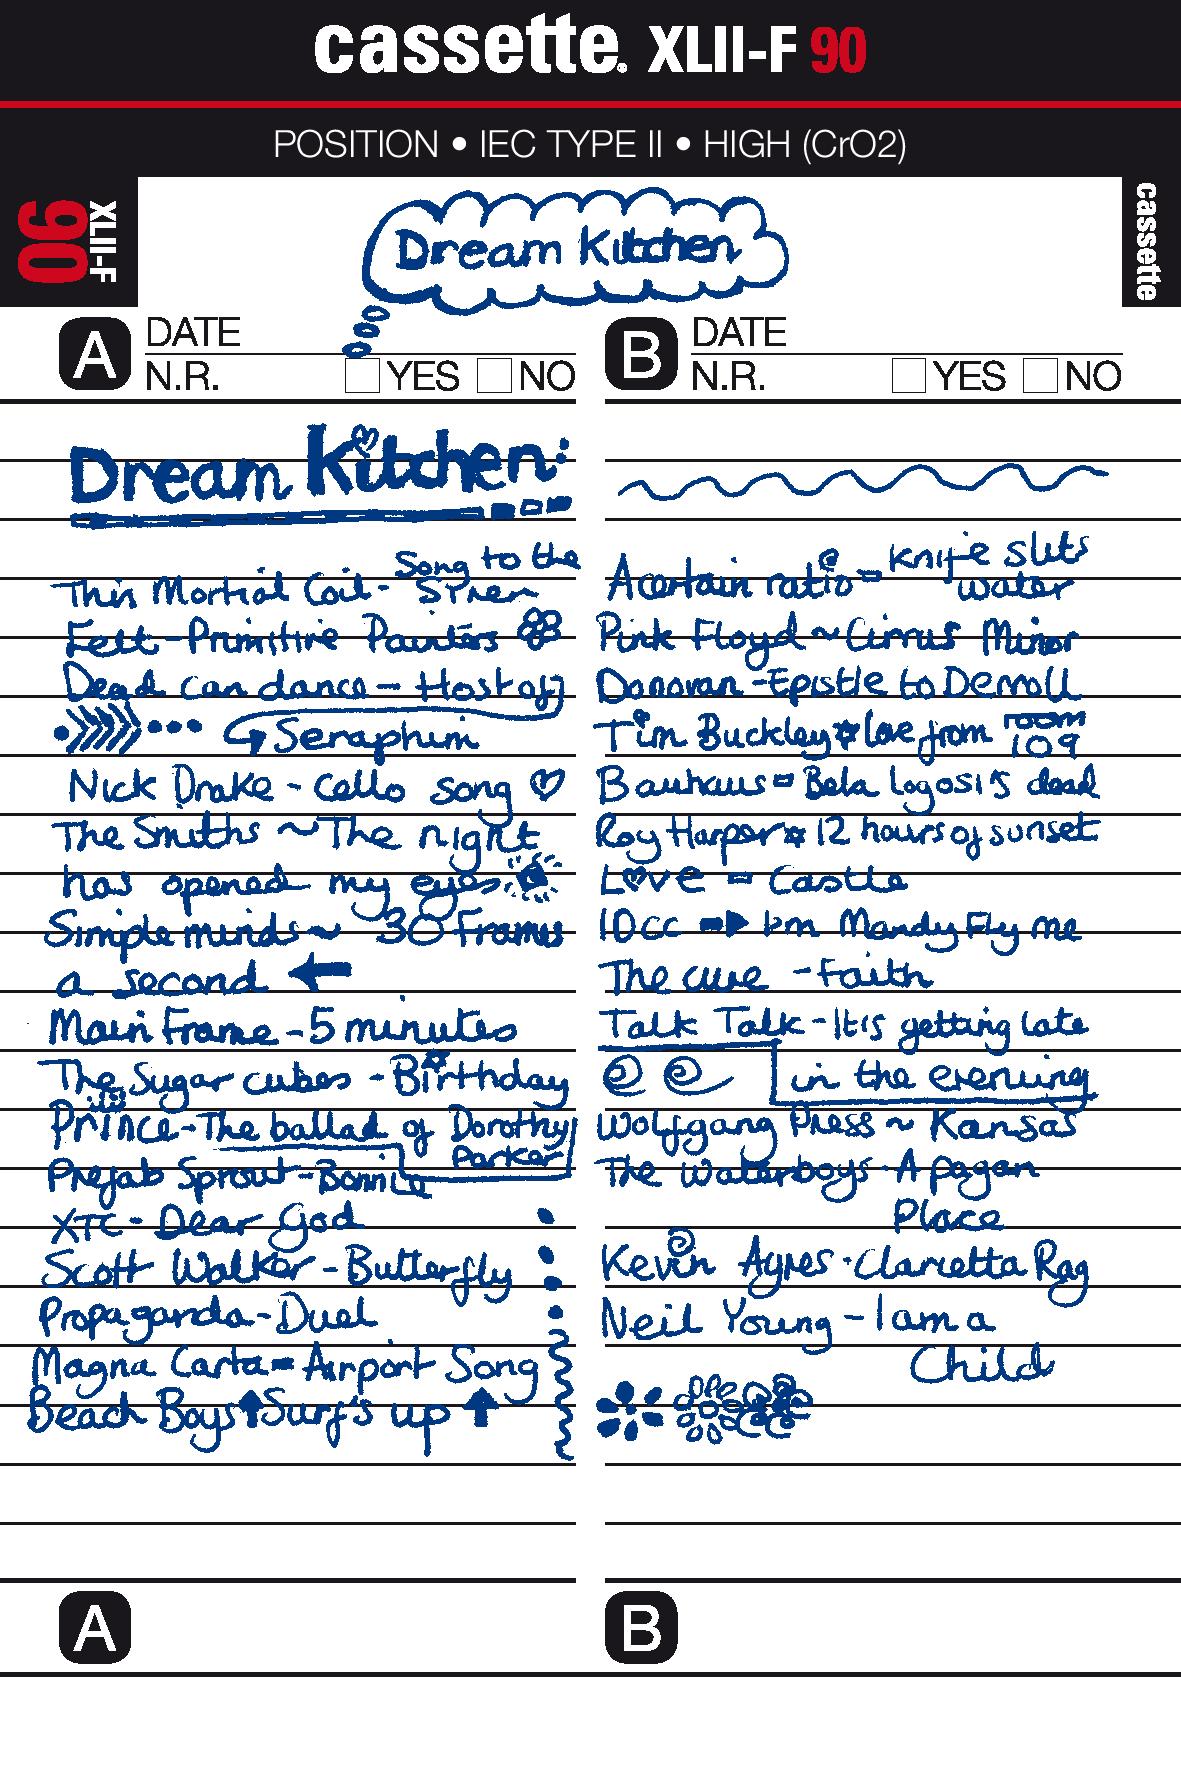 cassette. XLII-F 90
POSITION • IEC TYPE II • HIGH (CrO2)
XLII-F
90
cassette
Dream Kitchen
A DATE
N.R. YES NO
Dream Kitchen:
This Mortial Coil - Song to the
Siren
Felt - Primitive Painters
Dead can dance - Host of
Seraphim
Nick Drake - Cello song
The Smiths ~ The night
has opened my eyes
Simple minds ~ 30 Frames
a second
Main Frame - 5 minutes
The Sugar cubes - Birthday
Prince - The ballad of Dorothy
Parker
Prefab Sprout - Bonnie
XTC - Dear God
Scott Walker - Butterfly
Propaganda - Duel
Magna Carta = Airport Song
Beach Boys Surf's up
A
B DATE
N.R. YES NO
A certain ratio = Knife slits
water
Pink Floyd ~ Cirrus Minor
Donovan - Epistle to Derroll
Tim Buckley love from room
109
Bauhaus = Bela logosi's dead
Roy Harper 12 hours of sunset
Love = Castle
10cc I'm Mandy Fly me
The cure - Faith
Talk Talk - It's getting late
in the evening
Wolfgang Press ~ Kansas
The Waterboys - A pagan
Place
Kevin Ayres - Clarietta Rag
Neil Young - I am a
Child
B